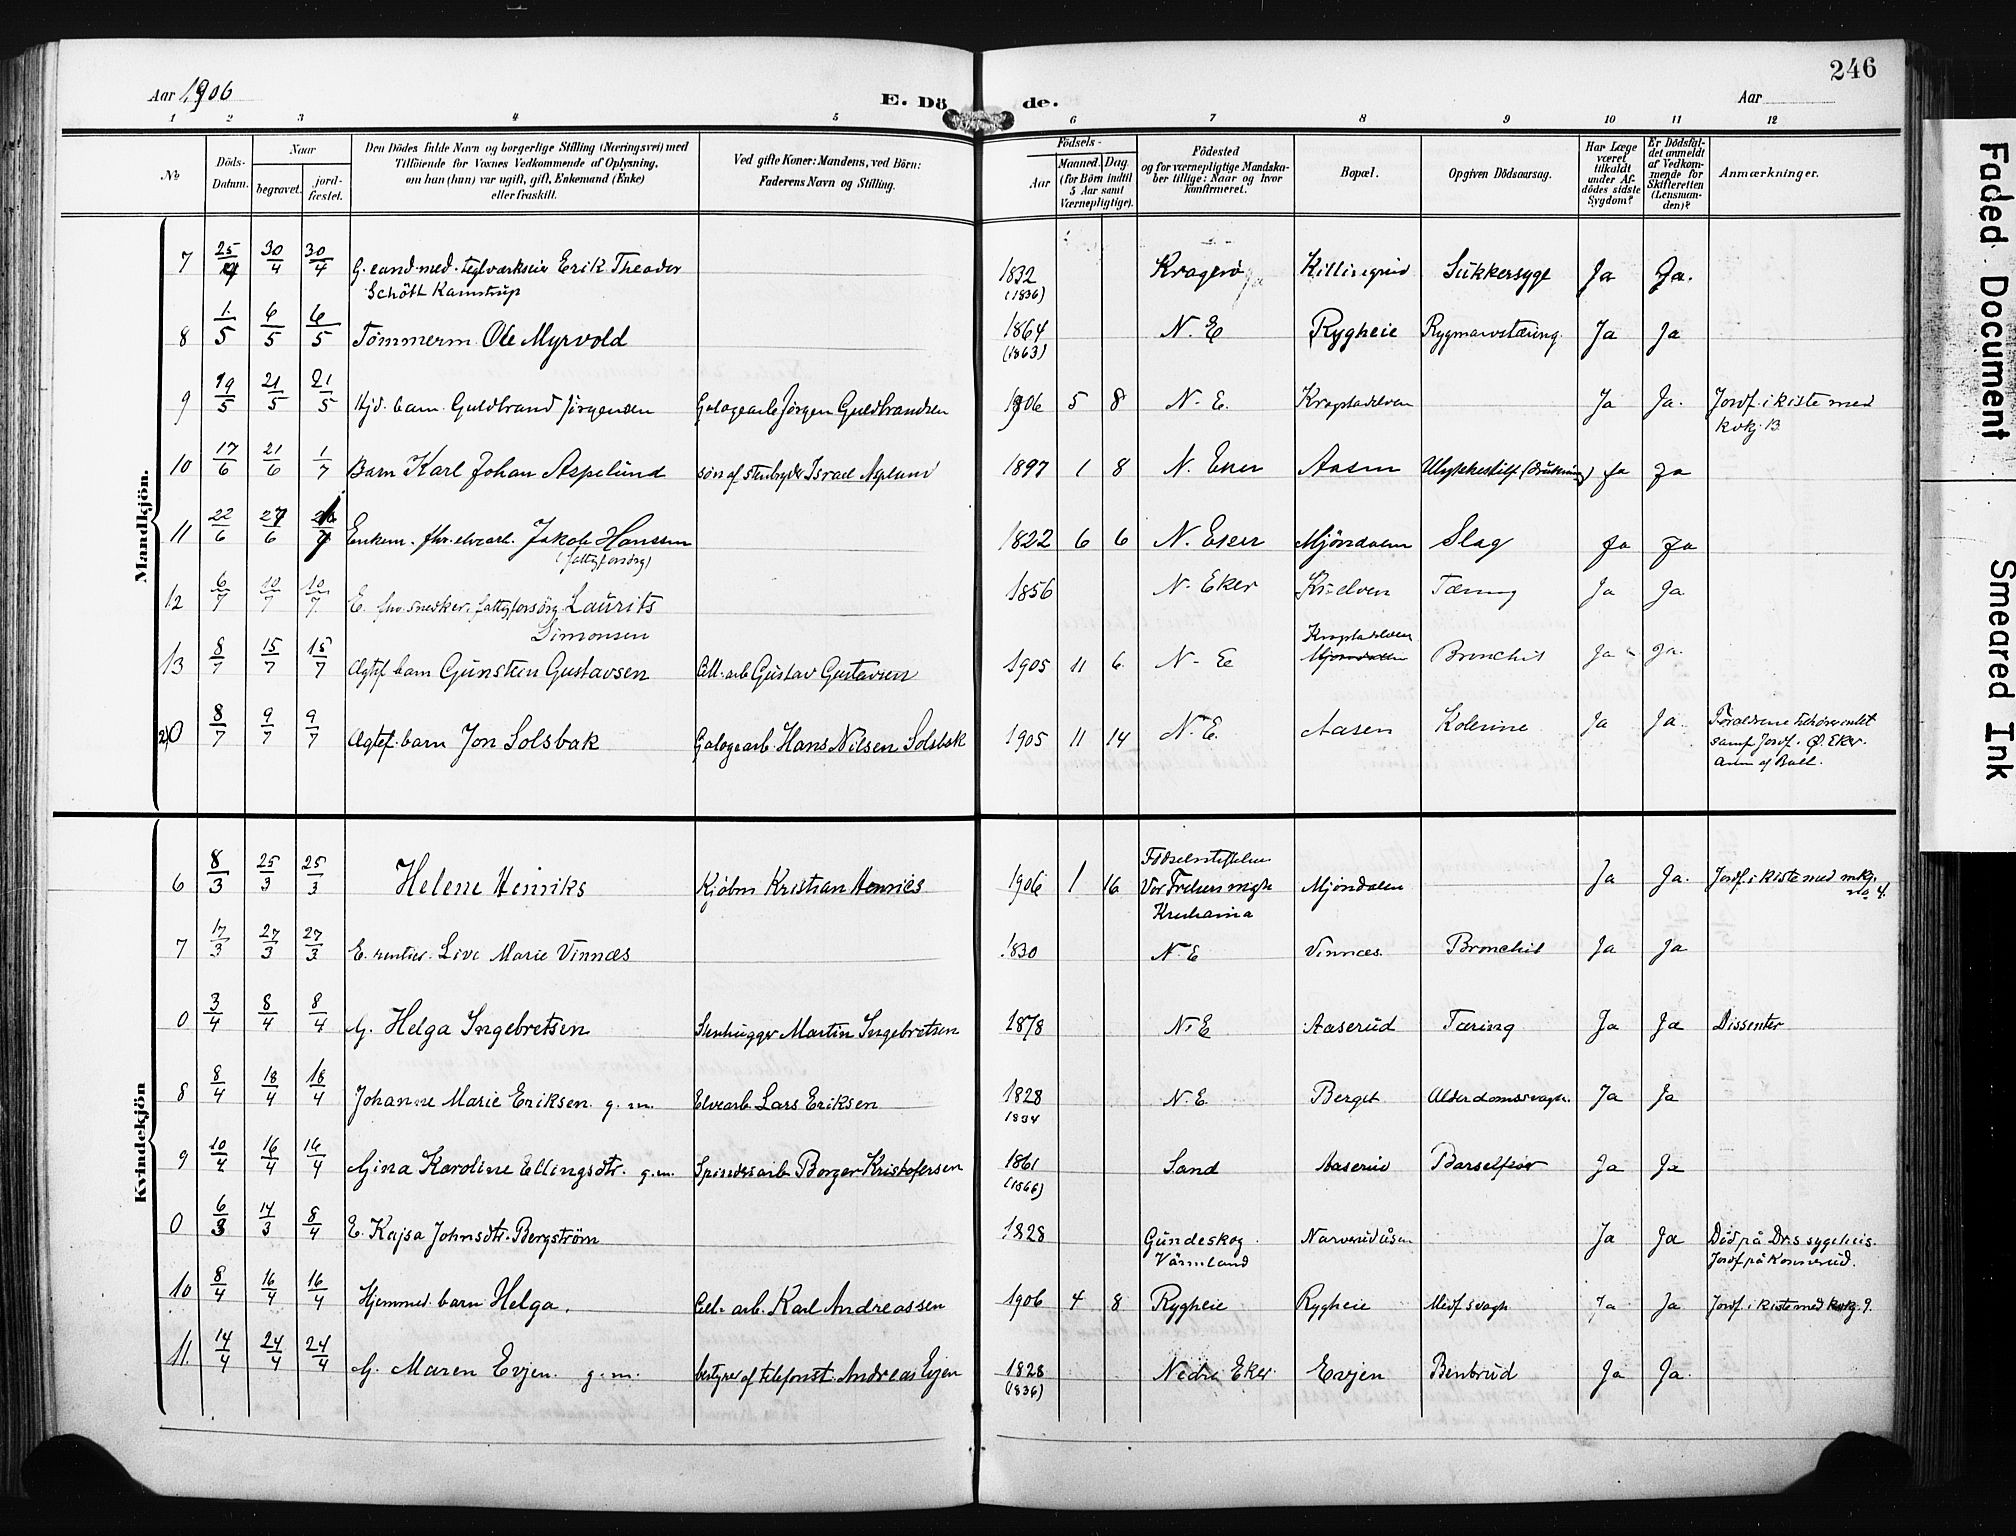 246
Aar 1906
E. Dö de.
Aar
1 2 3 4 5 6 7 8 9 10 11 12
No
Döds-Datum.
Naar
begravet.
jord-fæstet.
Den Dödes fulde Navn og borgerlige Stilling (Næringsvei) med
Tilföiende for Voxnes Vedkommende af Oplysning,
om han (hun) var ugift, gift, Enkemand (Enke)
eller fraskilt.
Ved gifte Koner: Mandens, ved Börn:
Faderens Navn og Stilling.
Födsels-
Aar
Maaned. Dag
(for Börn indtil
5 Aar samt
Værnepligtige).
Födested
og for værnepligtige Mandska-
ber tillige: Naar og hvor
konfirmeret.
Bopæl.
Opgiven Dödsaarsag.
Har Læge
været
tilkaldt
under Af-
dödes sidste
Sygdom?
Er Dödsfal-
det anmeldt
af Vedkom-
mende for
Skifteretten
(Lensman-
den)?
Anmærkninger.
Mandkjön.
7 25/4 30/4 30/4 G. cand. med. teglværkseier Erik Theodor 1832 Kragerø Killingrud Sukkersyge Ja Ja.
Schött Kamstrup (1836)
8 1/5 6/5 6/5 Tömmerm. Ole Myrvold 1864 N. E Rygheie Rygmarvstæring. Ja Ja
(1863)
9 19/5 21/5 21/5 Hjd. barn Guldbrand Jörgensen Galogearb Jørgen Guldbrandsen 1906 5 8 N. E. Krogstadelven Ja Ja. Jordf. i kiste med
kvkj. 13
10 17/6 21/6 1/7 Barn Karl Johan Aspelund søn af stenbryder Israel Asplund 1897 1 8 N. Eker Aasen Ulykkestilf (drukning) Ja Ja
11 22/6 27/6 Enkem. fhv. elvearb. Jakob Hanssen 1822 6 6 N. Eker Mjöndalen Slag Ja Ja
(fattigforsörg)
12 6/7 10/7 10/7 E. fhv. snedker, fattigforsörg. Laurits 1856 N. Eker Kr.elven Tæring Ja Ja
Simonsen
Krogstadelven
13 8/7 15/7 15/7 Ægtef barn Gunsten Gustavsen Cell. arb Gustav Gustavsen 1905 11 6 N. E Mjøndalen Bronchit Ja Ja.
0 8/7 9/7 9/7 Ægtef. barn Jon Solsbak Galogearb. Hans Nilsen Solsbak 1905 11 14 N. E. Aasen Kolerine Ja Ja. Forældrene tilhører intet
samf. Jordf. Ø. Eker.
Kvindekjön
Födselsstiftelsen
6 8/3 25/3 25/3 Helene Henriks Kjøbm Kristian Henries 1906 1 16 Vor Frelsers mgh Mjøndalen Ja Ja. Jordf. i kiste med mkj.
Kristiania no 4.
7 17/3 27/3 27/3 E. rentier. Live Marie Vinnæs 1830 N. E Vinnæs. Bronchit Ja Ja
0 3/4 8/4 8/4 G. Helga Ingebretsen Stenhugger Martin Ingebretsen 1878 N. E Aaserud Tæring Ja Ja Dissenter
8 8/4 18/4 18/4 Johanne Marie Eriksen g. m. Elvearb. Lars Eriksen 1828 N. E. Berget Alderdomssvagh. Ja Ja
1834
9 10/4 16/4 16/4 Gina Karoline Ellingsdtr. g. m. Spinderiarb Borger Kristofersen 1861 Sand Aaserud Barselfeber Ja Ja
(1866)
0 6/3 14/3 8/4 E. Kajsa Johnsdtr. Bergström 1828 Gundeskog Narverudåsen Ja Ja Död på Dr.s sygehus.
Värmland Jordf på Konnerud.
10 8/4 16/4 16/4 Hjemmed. barn Helga. Cell. arb. Karl Andreassen 1906 4 8 Rygheie Rygheie Medf. svagh Ja Ja Jordf. i kiste med kvkj. 9.
11. 14/4 24/4 24/4 G. Maren Evjen. g. m. bestyrer af telefonst. Andreas Evjen 1828 Nedre Eker Evjen Benbrud Ja Ja.
(1836)
Faded Document
Smeared Ink